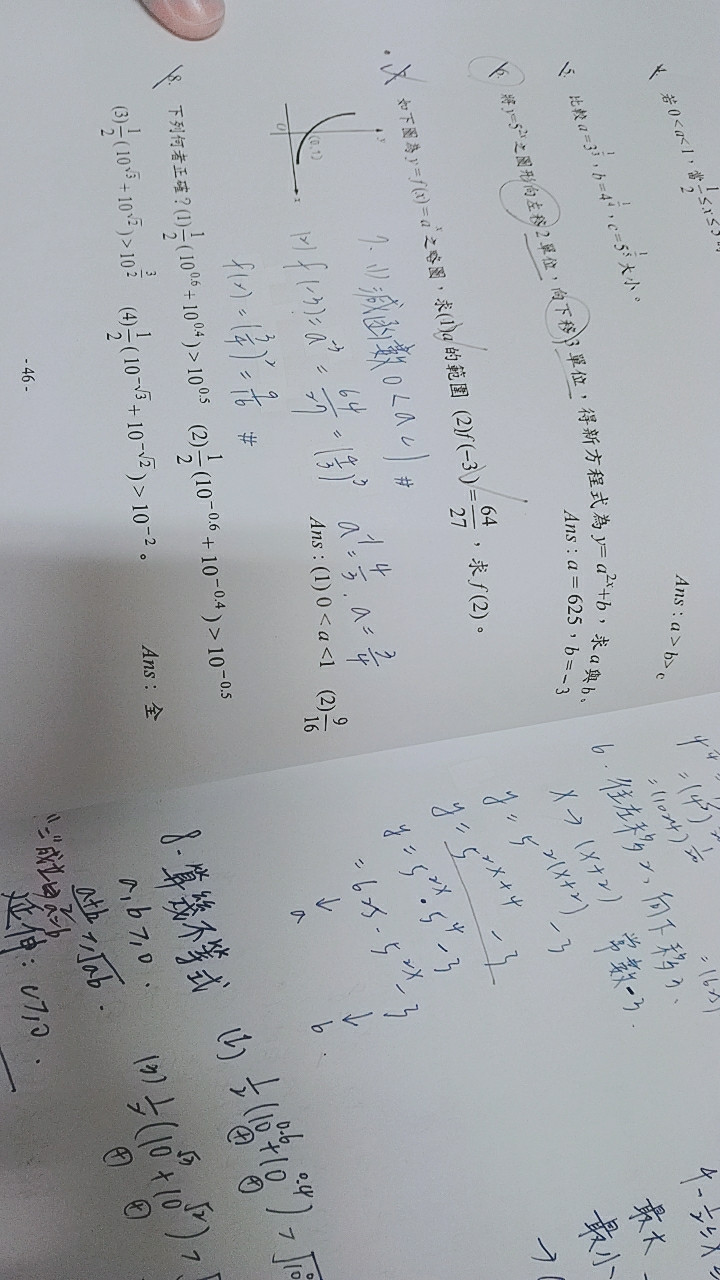 4. 若0<a<1，當1/2≤x≤
Ans：a>b>c
5. 比較a=3^(1/3)，b=4^(1/4)，c=5^(1/5)大小。
6. 將y=5^(2x)之圖形向左移2單位，向下移3單位，得新方程式為y=a^(2x)+b，求a與b。
Ans：a=625，b=-3
7. 如下圖為y=f(x)=a^x之略圖，求(1)a的範圍 (2)f(-3)=64/27，求f(2)。
y
(0,1)
O
x
7. (1)減函數 0<a<1 #
(2) f(-3)=a^(-3)=64/27=(4/3)^3 a^(-1)=4/3. a=3/4
f(2)=(3/4)^2=9/16 #
Ans：(1)0<a<1 (2)9/16
8. 下列何者正確？(1)1/2(10^0.6+10^0.4)>10^0.5 (2)1/2(10^-0.6+10^-0.4)>10^-0.5
(3)1/2(10^√3+10^√2)>10^(3/2) (4)1/2(10^-√3+10^-√2)>10^-2。
Ans：全
-46-
6. 往左移2、向下移3、
x→(x+2) 常數-3
y=5^(2(x+2))-3
y=5^(2x+4)-3
y=5^(2x)·5^4-3
=625·5^(2x)-3
↓ ↓
a b
8. 算幾不等式
a,b≥0.
(a+b)/2≥√ab.
"="成立⇔a=b
延伸：c≥0.
(1) 1/2(10^0.6+10^0.4)>
⊕ ⊕
(3) 1/2(10^√3+10^√2)>
⊕ ⊕
最大
最小